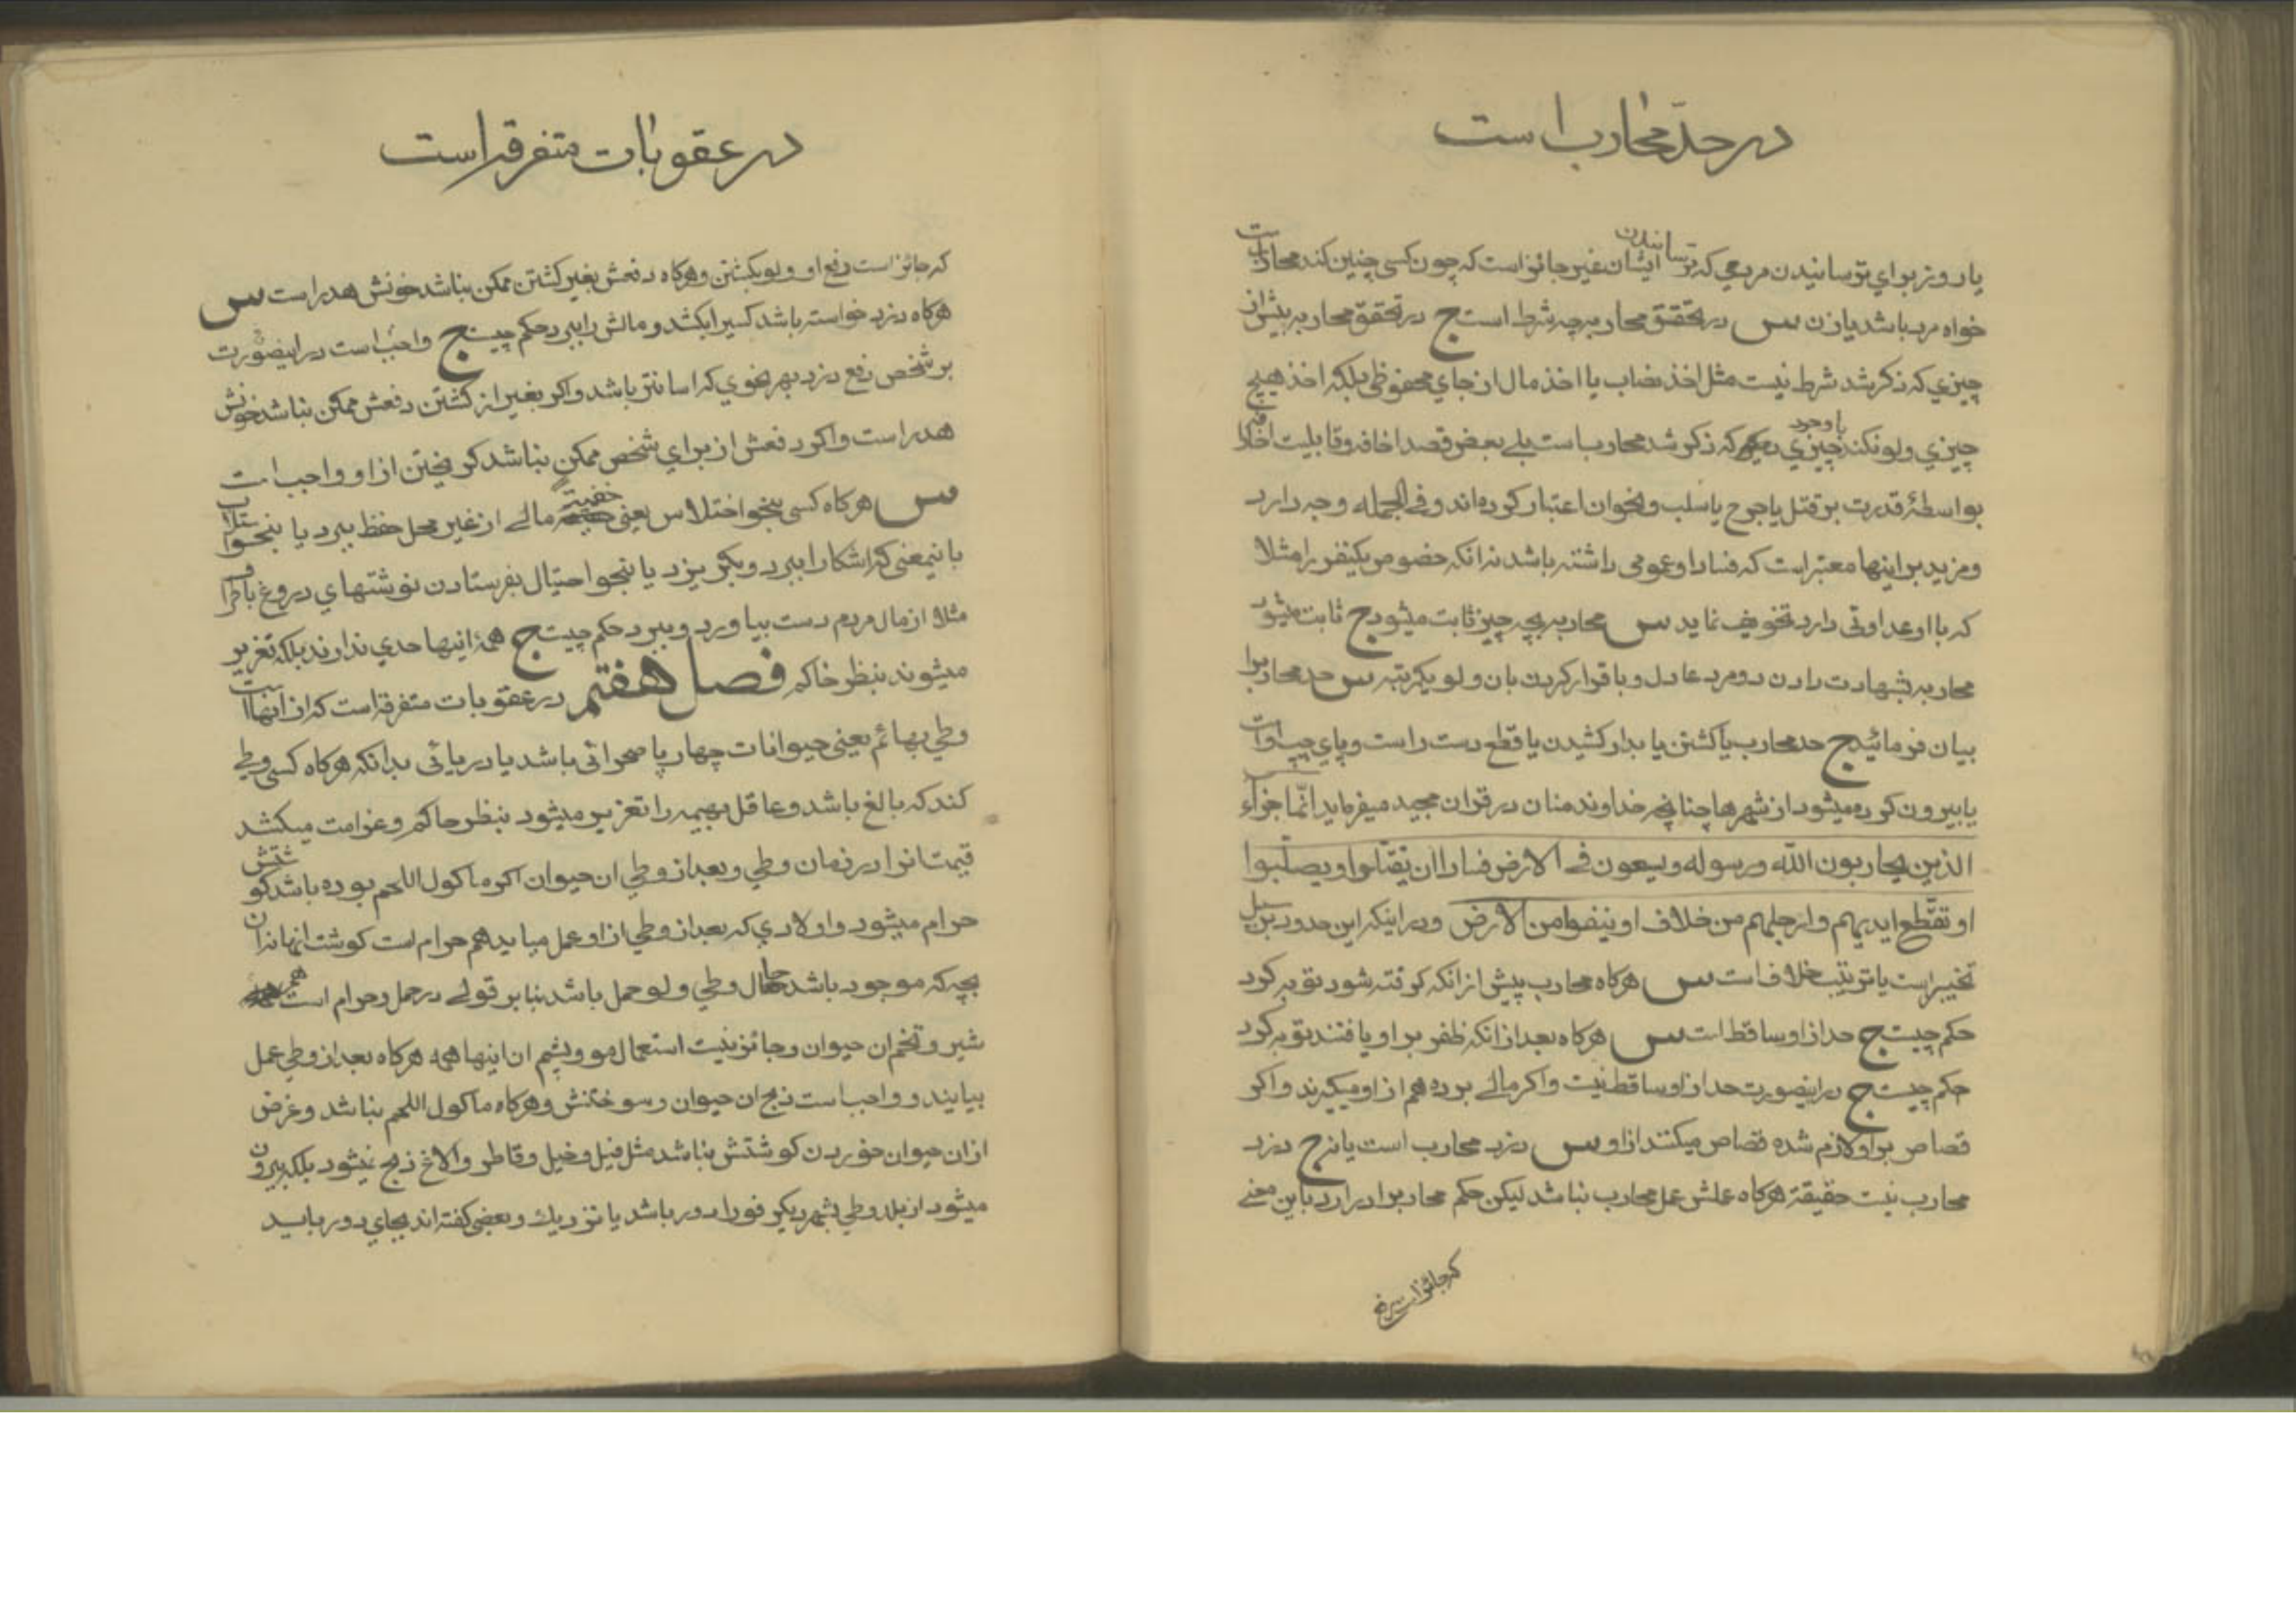 در حدّ محارب است
یا روز برای ترسانیدن مردمی که ترسانیدن ایشان غیر جائز است که چون کسی چنین کند محارب است
خواه مرد باشد یا زن س در تحقق محاربه چه شرط است ج در تحقق محاربه بیش از
چیزی که ذکر شد شرط نیست مثل اخذ نصاب یا اخذ مال از جای محفوظی بلکه اخذ هیچ
چیزی ولو نکند چیزی با وجود که ذکر شد محارب است بلی بعض قصد اخافه و قابلیت اخافه
بواسطهٔ قدرت بر قتل یا جرح یا سلب و نحو ان اعتبار کرده‌اند و فی الجمله وجه دارد
و مزید بر اینها معتبر است که فساد او عمومی داشته باشد نه انکه خصوص یکنفر را مثلا
که با او عداوتی دارد تخویف نماید س محاربه بچه چیز ثابت میشود ج ثابت میشود
محاربه بشهادت دادن دو مرد عادل و باقرار کردن بان ولو یکمرتبه س حد محارب را
بیان فرمائید ج حد محارب یا کشتن یا بدار کشیدن یا قطع دست راست و پای چپ او است
یا بیرون کرده میشود از شهرها چنانچه خداوند منان در قران مجید میفرماید انّما جزاء
الذین یحاربون الله و رسوله و یسعون فی الارض فسادا ان یقتّلوا او یصلّبوا
او تقطّع ایدیهم و ارجلهم من خلاف او ینفوا من الارض و در اینکه این حدود بر سبیل
تخییر است یا ترتیب خلاف است س هرگاه محارب پیش از انکه گرفته شود توبه کرد
حکم چیست ج حد از او ساقط است س هرگاه بعد از انکه ظفر بر او یافتند توبه کرد
حکم چیست ج در اینصورت حد از او ساقط نیست و اگر مالی برده هم از او میگیرند و اگر
قصاص بر او لازم شده قصاص میکنند از او س دزد محارب است یا نه ج دزد
محارب نیست حقیقة هرگاه علش عمل محارب نباشد لیکن حکم محارب را دارد باین معنی
که جائز است دفع
در عقوبات متفرقه است
که جائز است دفع او ولو بکشتن و هرگاه دفعش بغیر کشتن ممکن نباشد خونش هدر است س
هرگاه دزد خواسته باشد کسیرا بکشد و مالش را ببرد حکم چیست ج واجب است در اینصورت
بر شخص دفع دزد بهر نحوی که اسانتر باشد و اگر بغیر از کشتن دفعش ممکن نباشد خونش
هدر است و اگر دفعش از برای شخص ممکن نباشد گریختن از او واجب است
س هرگاه کسی بنحو اختلاس یعنی خفیة مالی از غیر محل حفظ ببرد یا بنحو استلاب
باینمعنی که اشکارا ببرد و بگریزد یا بنحو احتیال بفرستادن نوشتهای دروغ باطراف
مثلا از مال مردم دست بیاورد و ببرد حکم چیست ج همهٔ اینها حدی ندارند بلکه تعزیر
میشوند بنظر حاکم فصل هفتم در عقوبات متفرقه است که از انها است
وطی بهائم یعنی حیوانات چهارپا صحرائی باشد یا دریائی بدانکه هرگاه کسی وطی
کند که بالغ باشد و عاقل بهیمه را تعزیر میشود بنظر حاکم و غرامت میکشد
قیمت انرا در زمان وطی و بعد از وطی ان حیوان اگر ماکول اللحم بوده باشد گوشتش
حرام میشود و اولادی که بعد از وطی از او عمل میاید هم حرام است گوشت انها نه ان
بچه که موجود باشد حال وطی ولو حمل باشد بنا بر قولی در حمل و حرام است هم
شیر و تخم ان حیوان و جائز نیست استعمال مو و پشم ان اینها همه هرگاه بعد از وطی عمل
بیایند و واجب است ذبح ان حیوان و سوختنش و هرگاه ماکول اللحم نباشد و غرض
از ان حیوان خوردن گوشتش نباشد مثل فیل و خیل و قاطر و الاغ ذبح نمیشود بلکه بیرون
میشود از بلد وطی بشهر دیگر فورا دور باشد یا نزدیک و بعضی گفته‌اند بجای دور باید